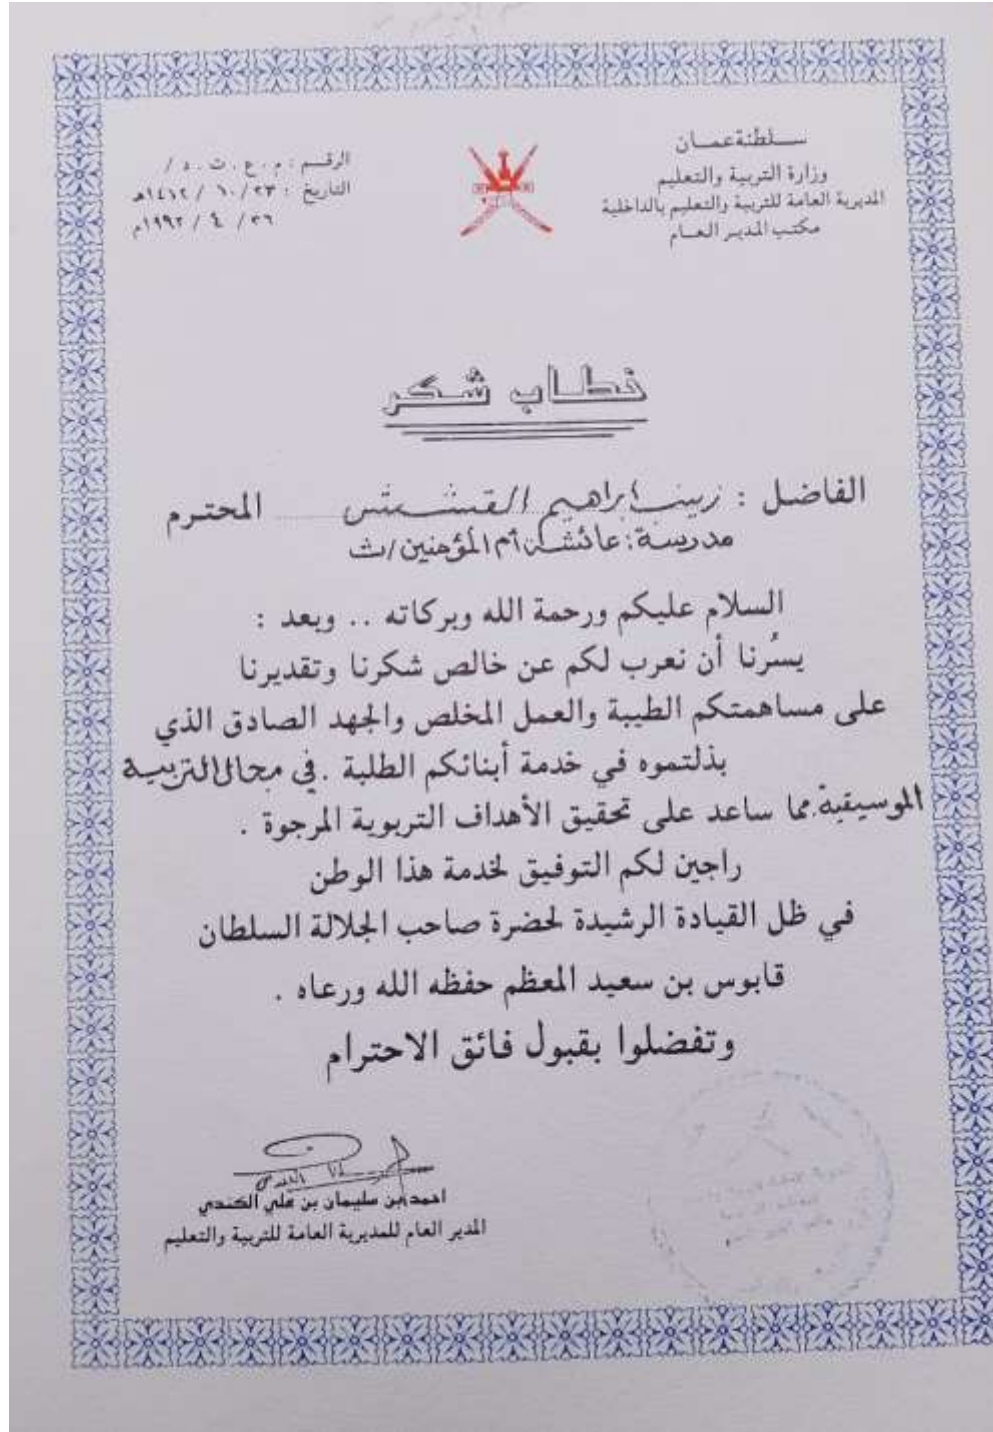 سلطنة عمان
وزارة التربية والتعليم
المديرية العامة للتربية والتعليم بالداخلية
مكتب المدير العام
الرقم : م . ع . ت . د /
التاريخ : ٢٣ / ١٠ / ١٤١٢هـ
٢٦ / ٤ / ١٩٩٢م
خطاب شكر
الفاضل : زينب ابراهيم القشتش المحترم
مدرسة : عائشة أم المؤمنين /ث
السلام عليكم ورحمة الله وبركاته .. وبعد :
يسُرنا أن نعرب لكم عن خالص شكرنا وتقديرنا
على مساهمتكم الطيبة والعمل المخلص والجهد الصادق الذي
بذلتموه في خدمة أبنائكم الطلبة . في مجال التربية
الموسيقية. مما ساعد على تحقيق الأهداف التربوية المرجوة .
راجين لكم التوفيق لخدمة هذا الوطن
في ظل القيادة الرشيدة لحضرة صاحب الجلالة السلطان
قابوس بن سعيد المعظم حفظه الله ورعاه .
وتفضلوا بقبول فائق الاحترام
احمد بن سليمان بن علي الكندي
المدير العام للمديرية العامة للتربية والتعليم